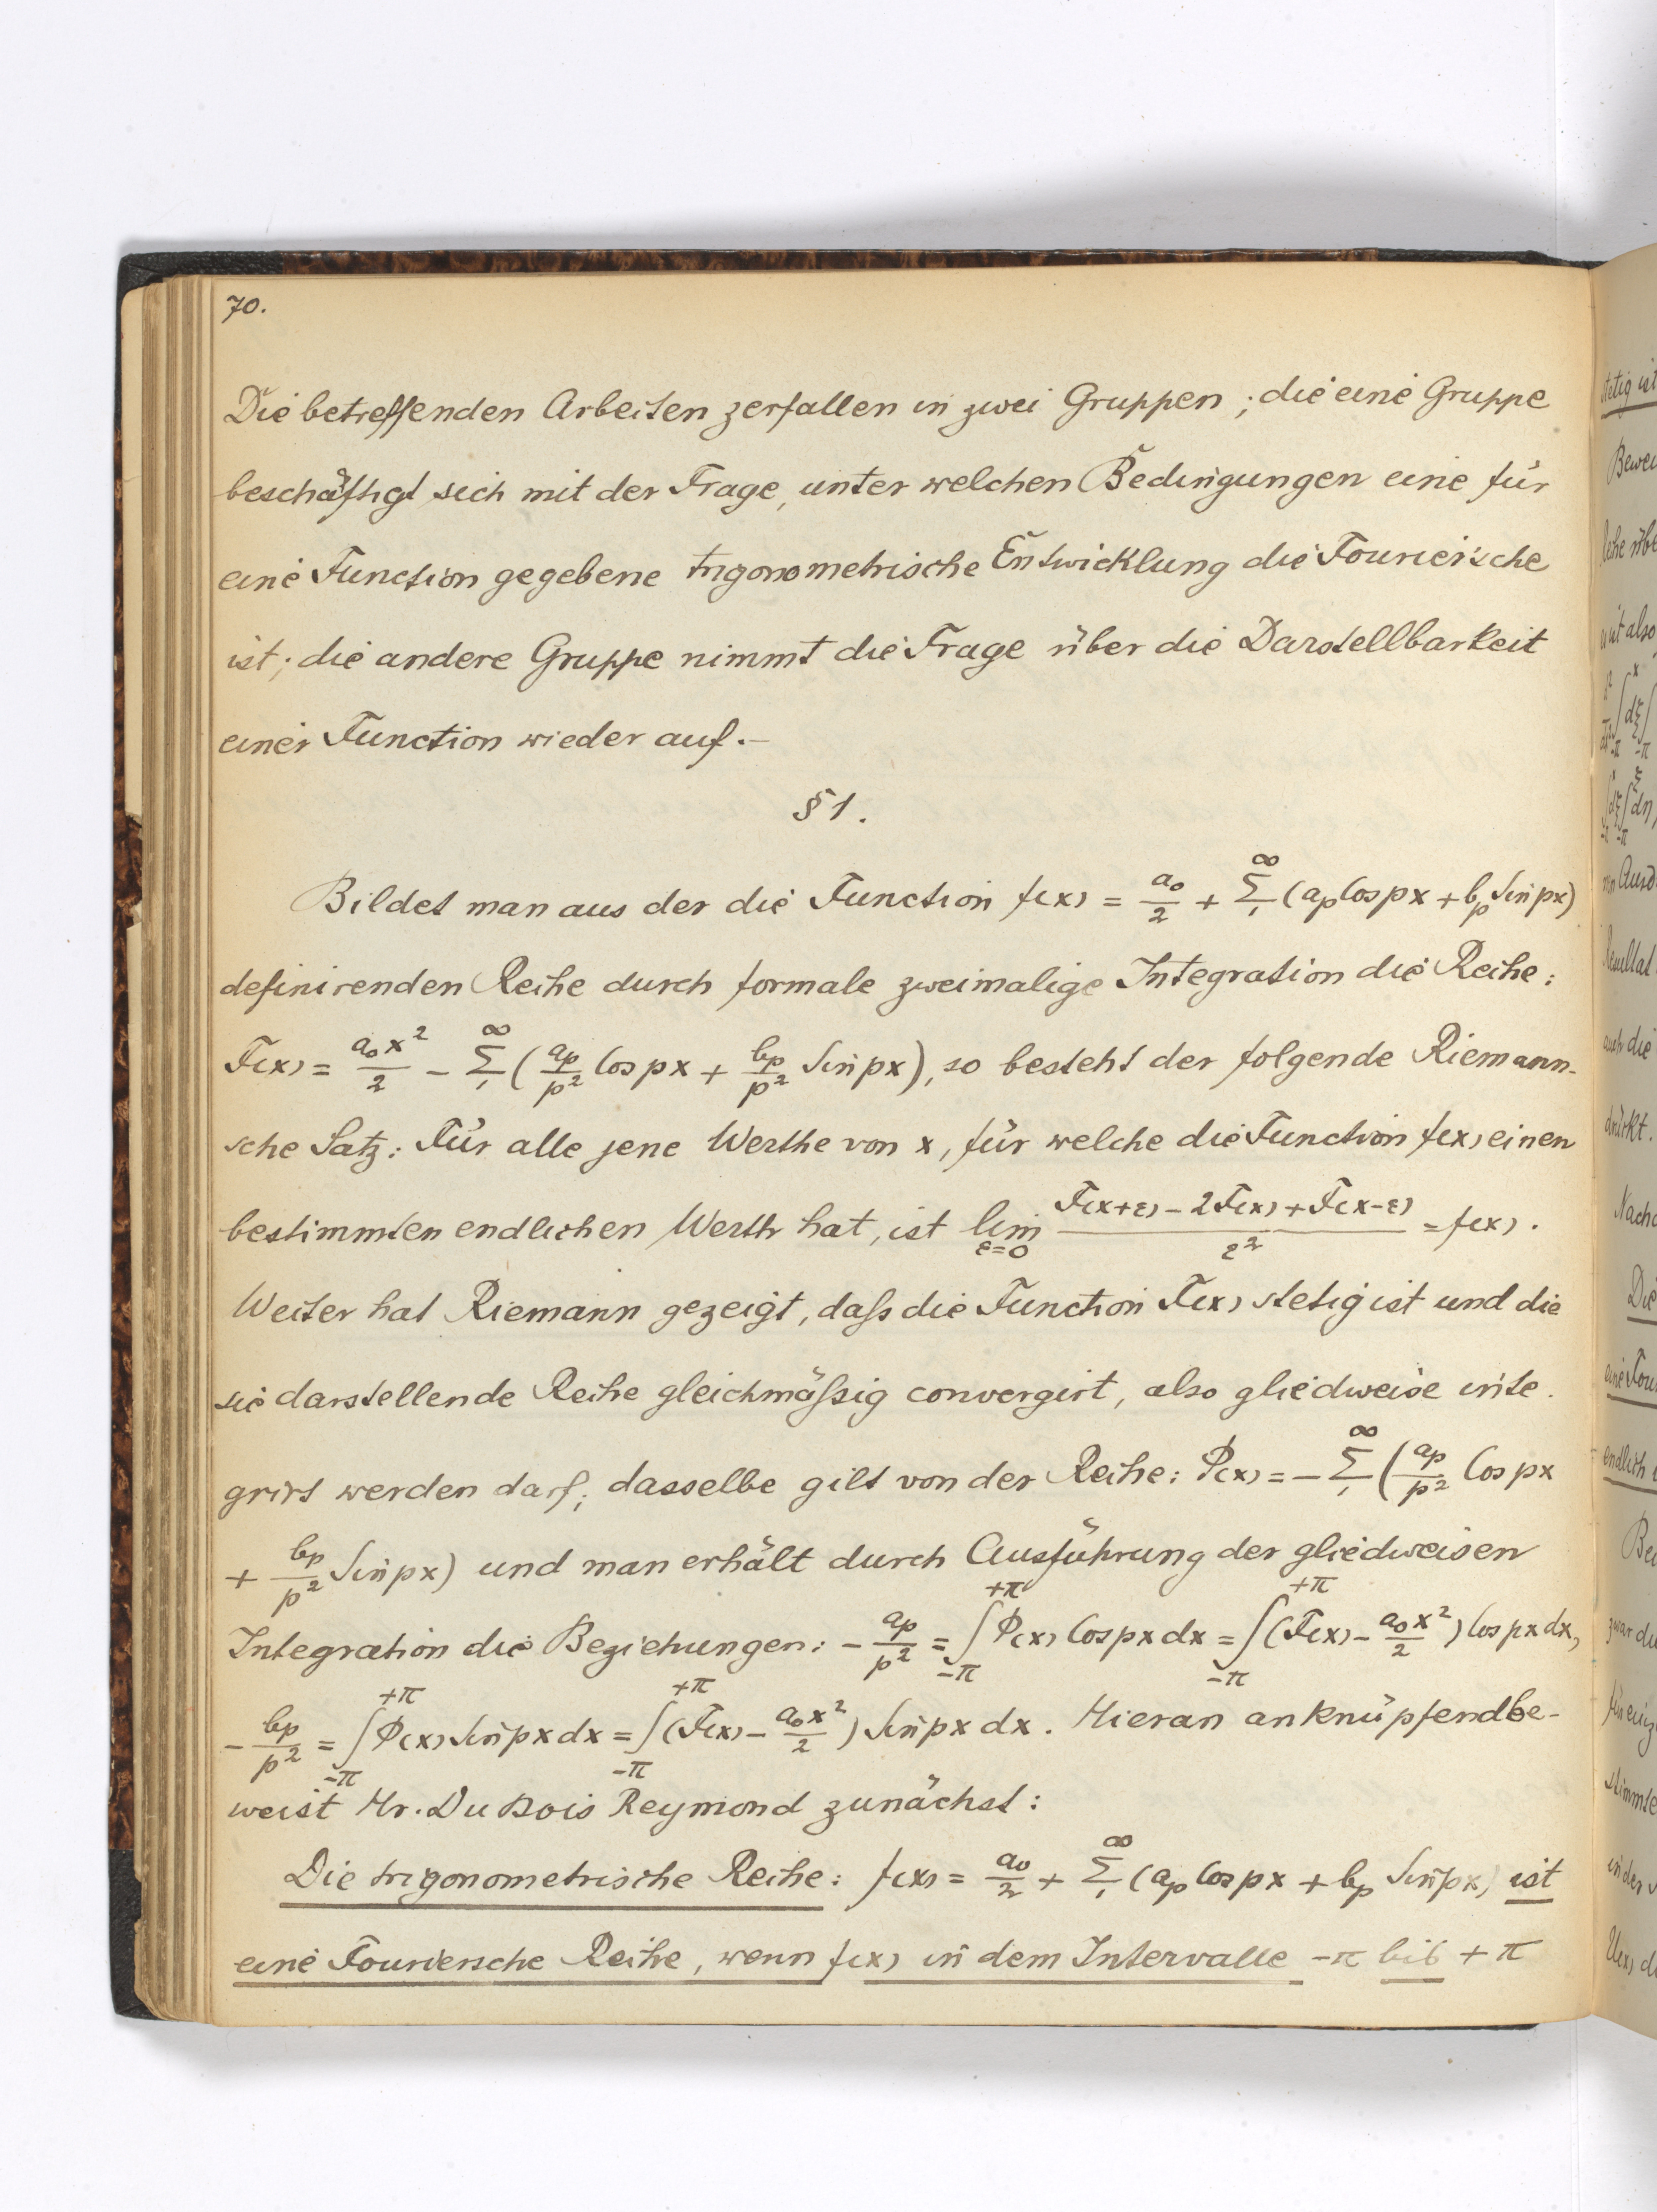 70.
Die betreffenden Arbeiten zerfallen in zwei Gruppen; die eine Gruppe
beschäftigt sich mit der Frage, unter welchen Bedingungen eine für
eine Function gegebene trigonometrische Entwicklung die Fourier'sche
ist; die andere Gruppe nimmt die Frage über die Darstellbarkeit
einer Function wieder auf.—
§ 1.
Bildet man aus der die Function f(x) = a₀/2 + Σ₁^∞ (aₚ Cos px + bₚ Sin px)
definirenden Reihe durch formale zweimalige Integration die Reihe:
F(x) = a₀x²/2 − Σ₁^∞ (aₚ/p² Cos px + bₚ/p² Sin px), so besteht der folgende Riemann-
sche Satz: Für alle jene Werthe von x, für welche die Function f(x) einen
bestimmten endlichen Werth hat, ist lim_{ε=0} (F(x+ε) − 2F(x) + F(x−ε))/ε² = f(x).
Weiter hat Riemann gezeigt, daſs die Function F(x) stetig ist und die
sie darstellende Reihe gleichmäſsig convergirt, also gliedweise inte-
grirt werden darf; dasselbe gilt von der Reihe: Φ(x) = − Σ₁^∞ (aₚ/p² Cos px
+ bₚ/p² Sin px) und man erhält durch Ausführung der gliedweisen
Integration die Beziehungen: − aₚ/p² = ∫_{−π}^{+π} Φ(x) Cos px dx = ∫_{−π}^{+π} (F(x) − a₀x²/2) Cos px dx,
− bₚ/p² = ∫_{−π}^{+π} Φ(x) Sin px dx = ∫_{−π}^{+π} (F(x) − a₀x²/2) Sin px dx. Hieran anknüpfend be-
weist Hr. Du Bois Reymond zunächst:
Die trigonometrische Reihe: f(x) = a₀/2 + Σ₁^∞ (aₚ Cos px + bₚ Sin px) ist
eine Fouriersche Reihe, wenn f(x) in dem Intervalle −π bis +π